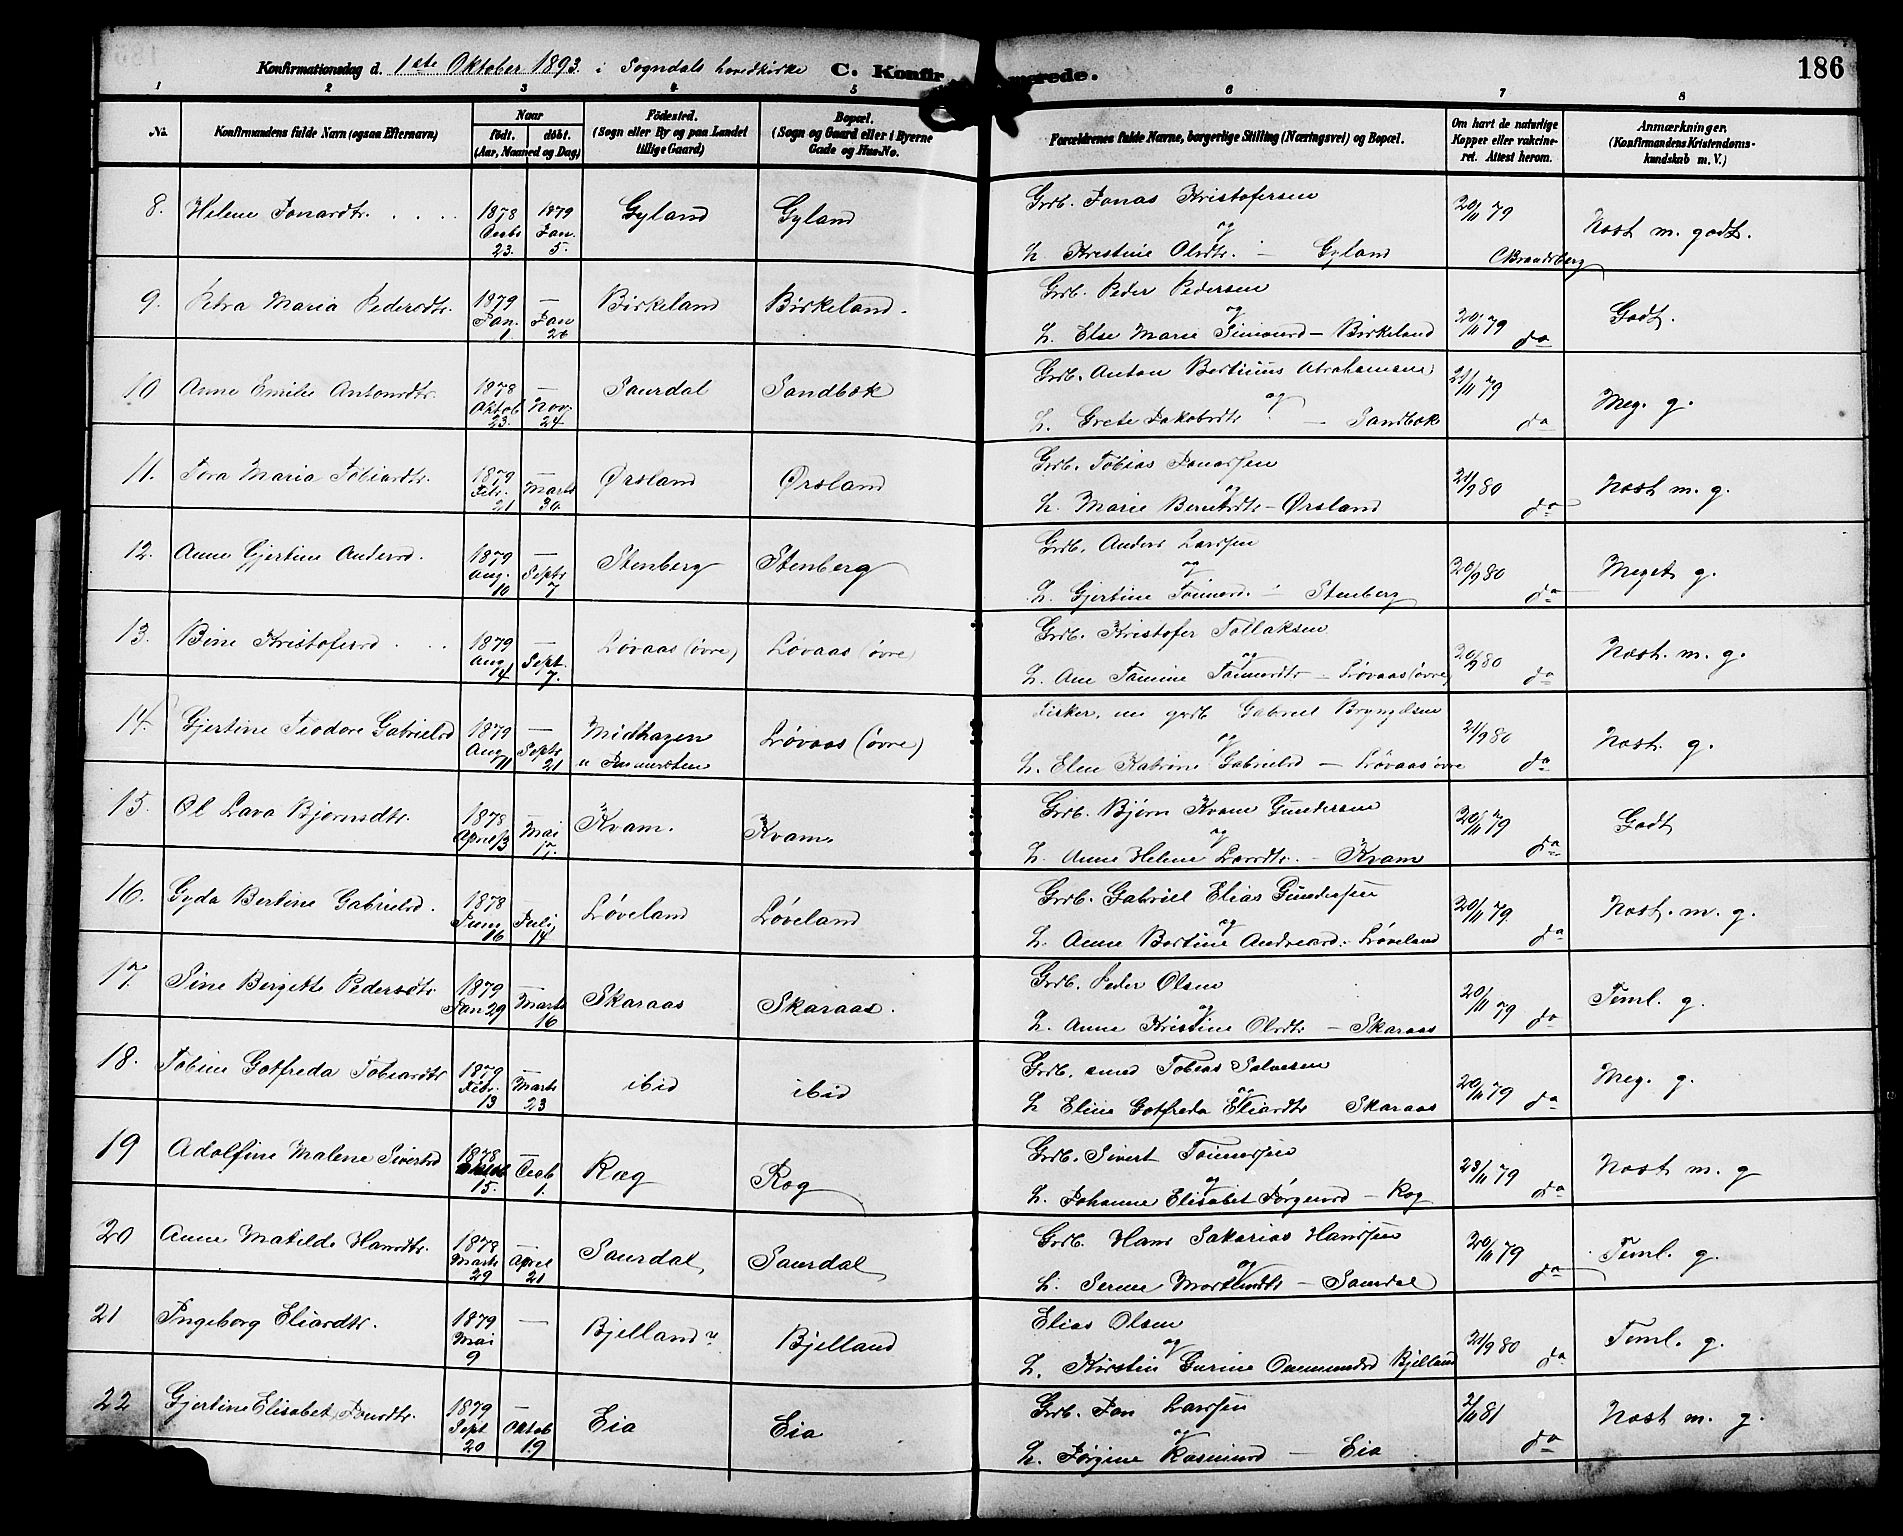 186
Konfirmationsdag d. 1ste Oktober 1893 i Sogndals hovedkirke C. Konfirmerede.
1 2 3 4 5 6 7 8
No. Konfirmandens fulde Navn (ogsaa Efternavn) Naar født. døbt. (Aar, Maaned og Dag) Fødested. (Sogn eller By og paa Landet tillige Gaard) Bopæl. (Sogn og Gaard eller i Byerne Gade og Hus-No. Forældrenes fulde Navne, borgerlige Stilling (Næringsvei) og Bopæl. Om havt de naturlige Kopper eller vakcineret. Attest herom. Anmærkninger. (Konfirmandens Kristendomskundskab m. V.)
8. Helene Jonasdtr. . . . . 1878 Decbr 23. 1879 Jan. 5. Gyland Gyland Grdb. Jonas Kristofersen
og
h. Kristine Olsdtr. — Gyland 20/11 79 CBrandsberg Næst m. godt.
9. Petra Maria Pedersdtr. 1879 Jan. 1. — Jan 26 Birkeland Birkeland. Grdb. Peder Pedersen
og
h. Else Marie Simonsd — Birkeland 20/11 79 do Godt.
10 Anne Emilie Antonsdtr. 1878 Oktob 23. — Nov. 24 Saurdal Sandbæk Grdb. Anton Bertinus Abrahamsen
og
h. Grete Jakobsdtr — Sandbæk 21/11 79 do Meg. g.
11. Tora Maria Tobiasdtr. 1879 Febr. 21 — Marts 30 Ørsland Ørsland Grdb. Tobias Jonassen
og
h. Marie Berntsdtr — Ørsland 21/9 80 do Næst m. g.
12. Anne Gjertine Andersd. 1879 Aug. 10 — Septr 7 Stenberg Stenberg Grdb. Anders Larssen
og
h. Gjertine Tønnesd. — Stenberg 20/9 80 do Meget g.
13. Bine Kristofersd . . . 1879 Aug 14 — Sept. 7. Løvaas (øvre) Løvaas (øvre) Grdb. Kristofer Tollaksen
og
h. Ane Tomine Tønnesdtr — Løvaas (øvre) 20/9 80 do Næst. m. g.
14. Gjertine Teodore Gabrielsd 1879 Aug 11 — Septr 21 Midhagen Løvaas (øvre) Fisker, nu grdb Gabriel Bryngelsen
og
h. Elen Katrine Gabrielsd — Løvaas øvre 21/9 80 do Næst. g.
15. Ol Lava Bjørnsdtr. 1878 April 13 — Mai 17. Kvam. Kvam. Grdb. Bjørn Kvam Gundersen
og
h. Anne Helene Larsdtr. — Kvam 20/11 79 do Godt
16. Gyda Bertine Gabrielsd. 1878 Juni 16 — Juli 14 Løveland Løveland Grdb. Gabriel Elias Gundersen
og
h. Anne Bertine Andreasd. Løveland 20/11 79. do Næst. m. g.
17. Sine Bergitte Pedersdtr 1879 Jan 29 — Marts 16 Skaraas Skaraas. Grdb. Peder Olsen
og
h. Anne Kristine Olsdtr — Skaraas 20/11 79 do Teml. g.
18. Tobine Gotfreda Tobiasdtr 1879 Febr. 13 — Marts 23 ibid ibid Grdb. Tobias Salvesen
og
h. Eline Gotfreda Eliasdtr Skaraas 20/11 79 do Meg. g.
19 Adolfine Malene Sivertsd 1878 15. — Decb 1. Ræg Ræg Grdb. Sivert Tønnessen
og
h. Johanne Elisabet Jørgensd — Ræg 23/11 79 do Næst m. g
20 Anne Matilde Hansdtr. 1878 Marts 29 — April 21 Saurdal Saurdal Grdb. Hans Sakarias Hanssen
og
h. Serine — Saurdal 20/11 79 do Teml. g.
21 Ingeborg Eliasdtr. 1879 Mai 9 — Bjelland Bjelland Elias Olsen
og
h. Kirstin Gurine Ommundsd Bjelland 21/9 80 do Teml. g.
22 Gjertine Elisabet Jonsdtr. 1879 Sept 20 — Oktob 19 Eia Eia Grdb. Jon Larssen
og
h. Jørgine Rasmusd — Eia 2/11 81 do Næst m. g.